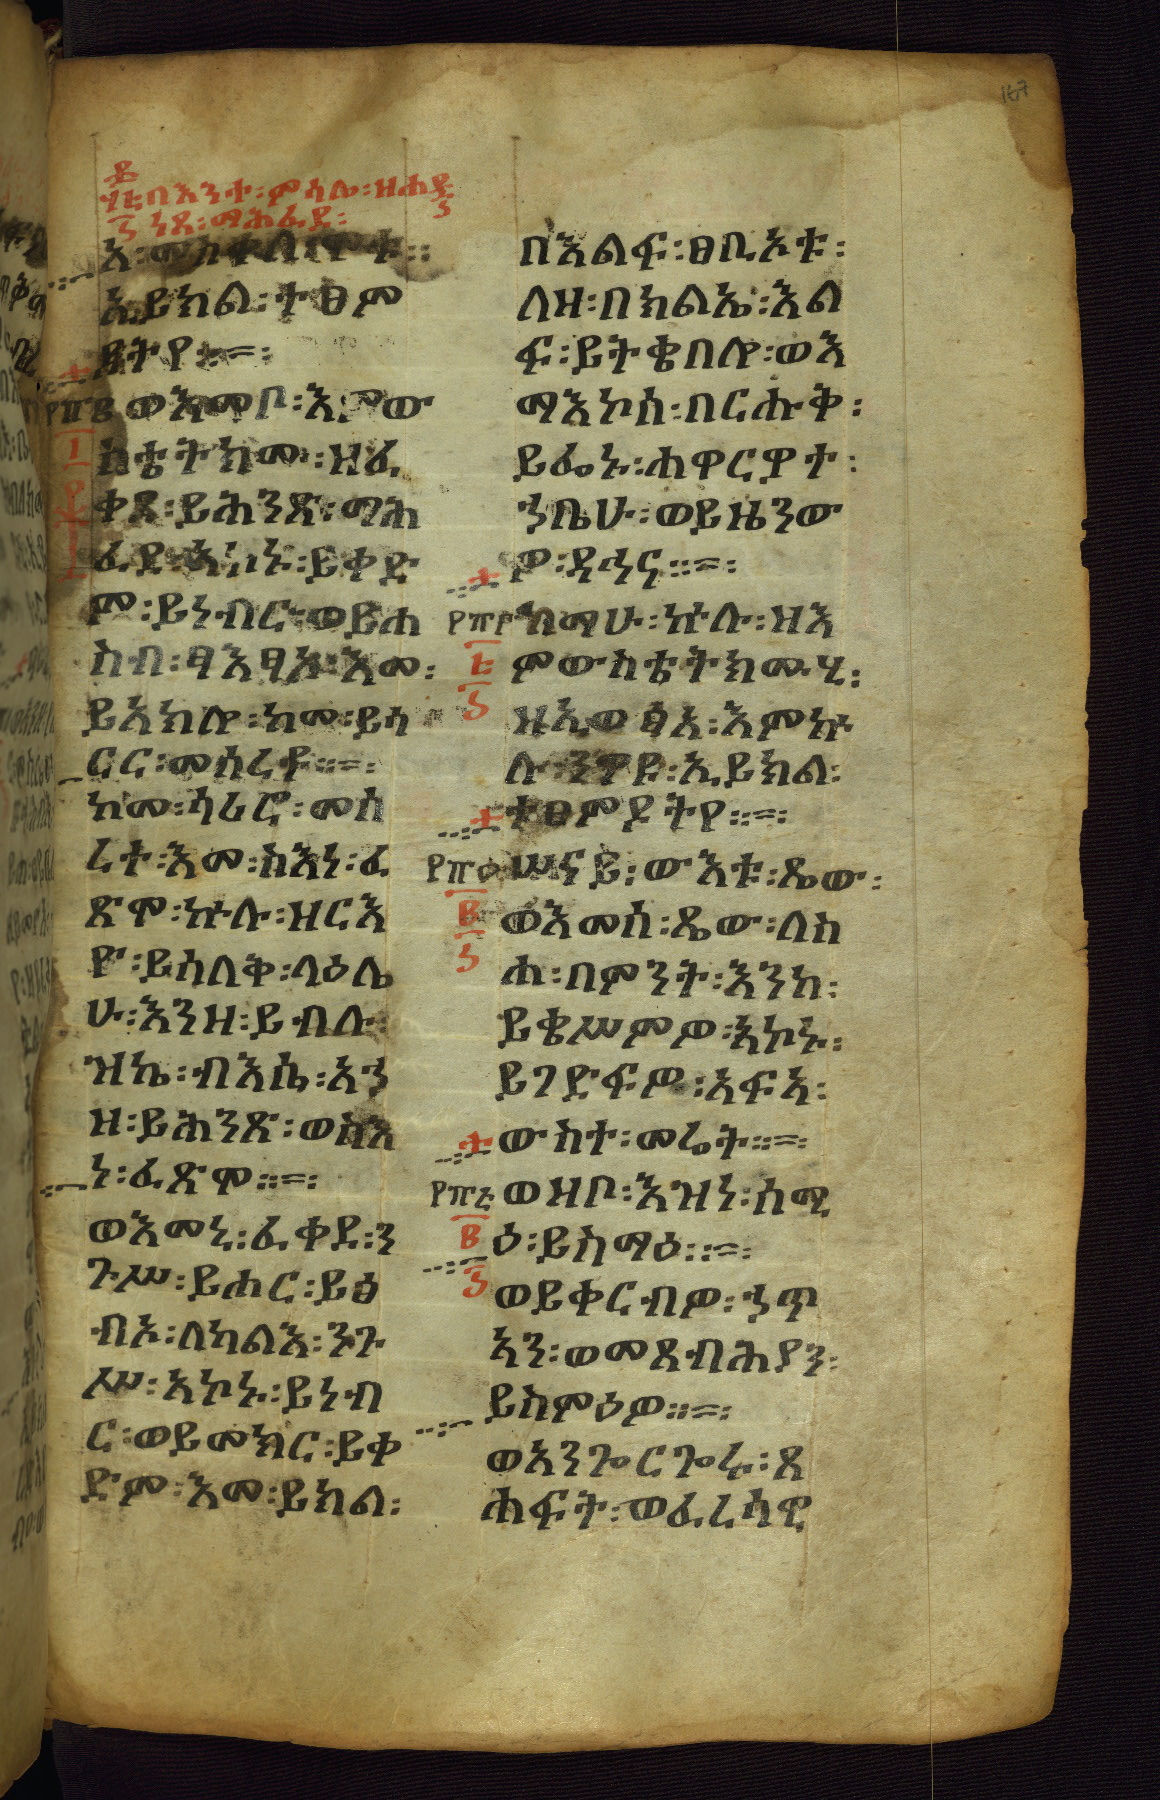 በእንተ፡ምሳሌ፡ዘሐ
ነጸ፡ማሕፈደ፡
አ፡መስቀሎ፡ሞቱ።
ኢይክል፡ትፀም
ደትየ።=፡
ወእመቦ፡እምው
ስቴትክሙ፡ዘፈ
ቀደ፡ይሕንጽ፡ማሕ
ፈደ፡አኮኑ፡ይቀድ
ም፡ይነብር፡ወይሐ
ስብ፡ፃእፃኡ፡እመ፡
ይእክሎ፡ከመ፡ይሳ
ርር፡መሰረዮ።=፡
ከመ፡ሳሪሮ፡መሰ
ረተ፡እመ፡ስእነ፡ፈ
ጽሞ፡ኵሉ፡ዘርእ
ዮ፡ይሳለቅ፡ላዕሌ
ሁ፡እንዘ፡ይብሉ፡
ዝኬ፡ብእሴ፡አኀ
ዘ፡ይሕንጽ፡ወስእ
ነ፡ፈጽሞ።=፡
ወእመኒ፡ፈቀደ፡ን
ጉሥ፡ይሐር፡ይፅ
ብኦ፡ለካልእ፡ንጉ
ሥ፡አኮኑ፡ይነብ
ር፡ወይመክር፡ይቀ
ድም፡እመ፡ይክል፡
በእልፍ፡ፀቢኦቱ፡
ለዘ፡በክልኤ፡እል
ፍ፡ይትቄበሎ፡ወእ
ማእኮሰ፡በርሑቅ፡
ይፌኑ፡ሐዋርያተ፡
ኀቤሁ፡ወይዜንው
ዎ፡ዳኅና።=፡
ከማሁ፡ኵሉ፡ዘእ
ምውስቴትክሙሂ፡
ዘኢወፅአ፡እምኵ
ሉ፡ንዋዩ፡ኢይክል፡
ተፀምዶትየ።=፡
ሠናይ፡ውእቱ፡ጼው፡
ወእመሰ፡ጼው፡ለስ
ሐ፡በምንት፡እንከ፡
ይቄሥምዎ፡አኮኑ፡
ይገድፍዎ፡አፍአ፡
ውስተ፡መሬት።=፡
ወዘቦ፡እዝነ፡ሰማ
ዕ፡ይስማዕ።=፡
ወይቀርብዎ፡ኃጥ
ኣን፡ወመጸብሕያን፡
ይስምዕዎ።=፡
ወአንጐርጐሩ፡ጸ
ሐፍት፡ወፈረሳዊ